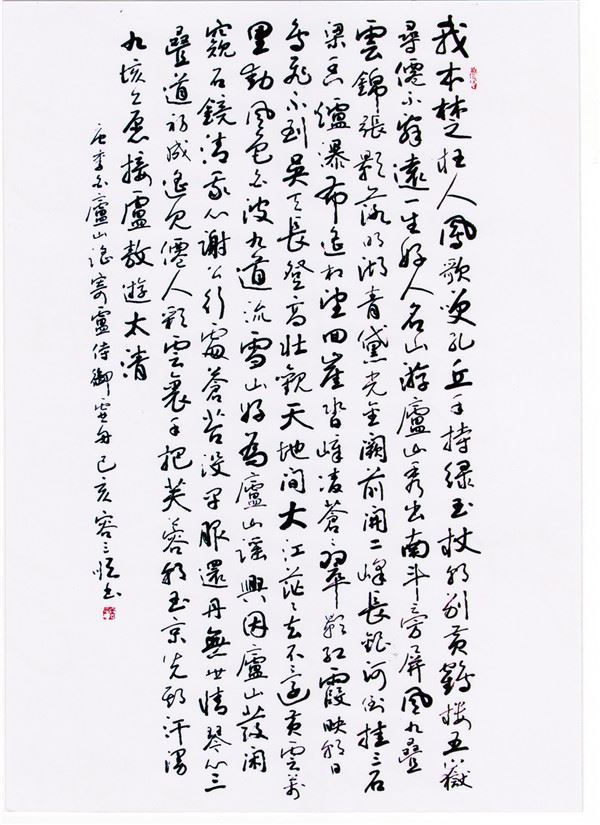 我本楚狂人鳳歌笑孔丘手持绿玉杖朝别黄鶴樓五嶽
尋僊不辭遠一生好入名山游廬山秀出南斗旁屏風九疊
雲錦張影落明湖青黛光金闕前開二峰長銀河倒挂三石
梁香爐瀑布遙相望回崖沓嶂凌蒼〻翠影紅霞映朝日
鳥飛不到吳天長登高壯觀天地間大江茫〻去不還黄雲萬
里動風色白波九道流雪山好為廬山謠興因廬山發閑
窺石鏡清我心謝公行處蒼苔没早服還丹無世情琴心三
疊道初成遙見僊人彩雲裏手把芙蓉朝玉京先期汗漫
九垓上愿接盧敖遊太清
唐李白廬山謠寄盧侍御虛舟己亥容三書